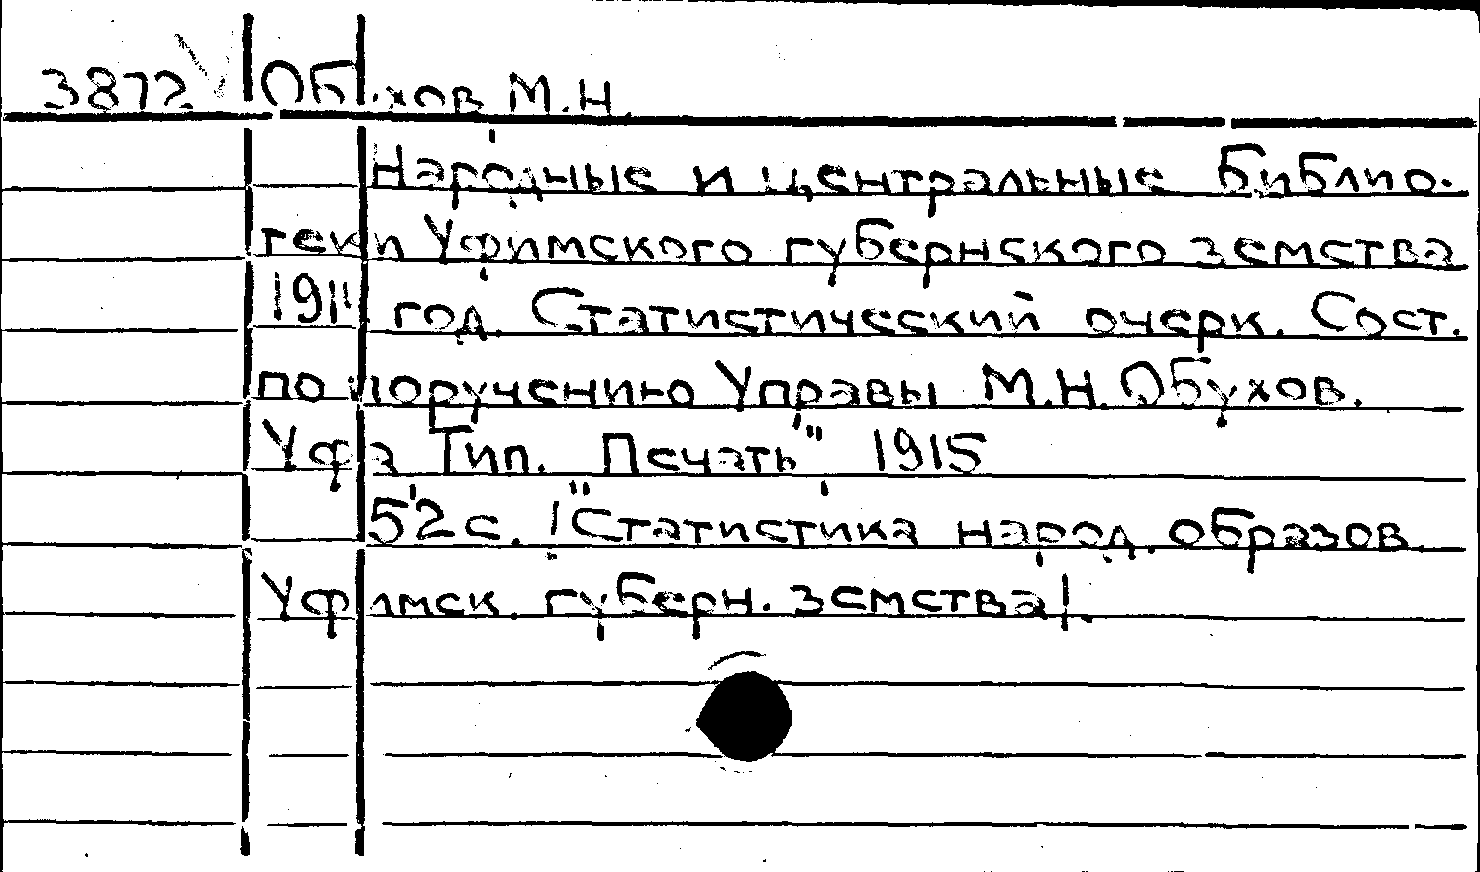 3872 Обухов М.Н.
Народные и центральные библио-
теки Уфимского губернского земства
1911 год. Статистический очерк. Сост.
по поручению Управы М.Н.Обухов.
Уфа Тип. "Печать" 1915
52 с. /"Статистика народ. образов.
Уфимск. губерн. земства/.